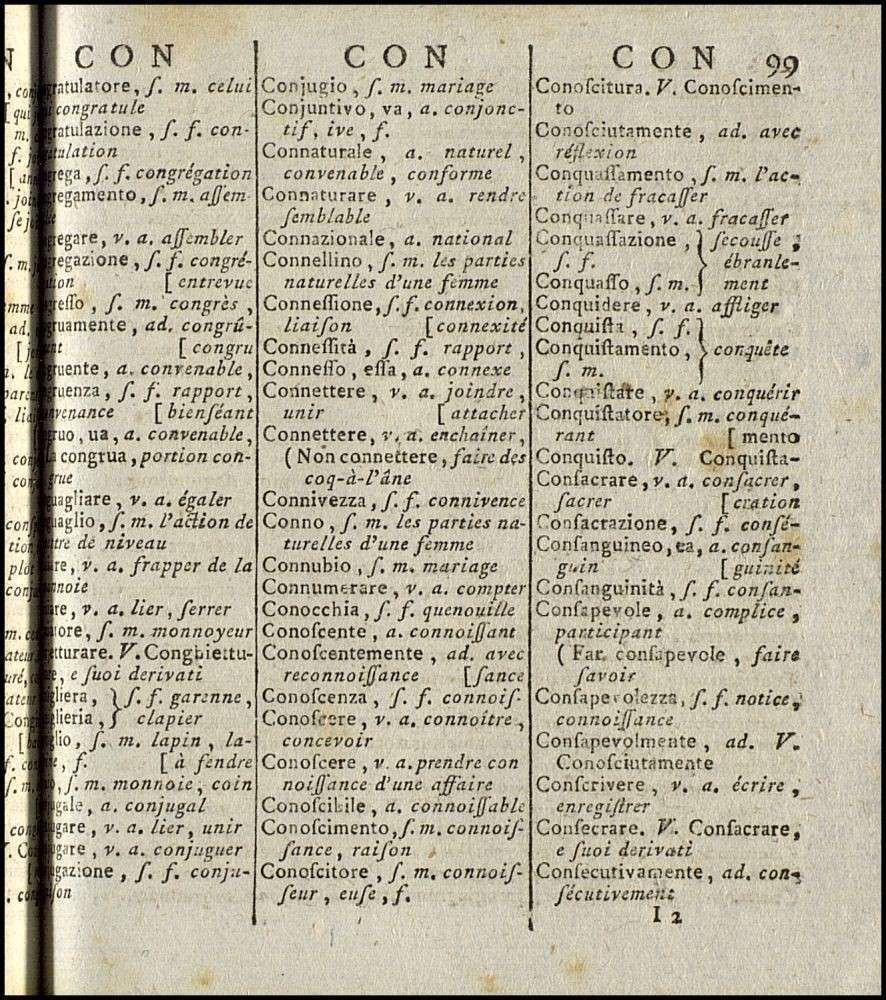 CON CON CON 99
ratulatore, ſ. m. celui
congratule
ratulazione, ſ. f. con-
tulation
rega, ſ. f. congrégation
regamento, ſ. m. aſſem-
regare, v. a. aſſembler
regazione, ſ. f. congré-
tion [entrevue
greſſo, ſ. m. congrès,
gruamente, ad. congrû-
ent [congru
gruente, a. convenable,
gruenza, ſ. f. rapport,
nvenance [bienſéant
gruo, ua, a. convenable,
a congrua, portion con-
grue
guagliare, v. a. égaler
guaglio, ſ. m. l'action de
ttre de niveau
are, v. a. frapper de la
nnoie
are, v. a. lier, ſerrer
atore, ſ. m. monnoyeur
etturare. V. Conghiettu-
e, e ſuoi derivati
gliera, } ſ. f. garenne,
glieria, } clapier
glio, ſ. m. lapin, la-
e, f. [à fendre
o, ſ. m. monnoie, coin
ugale, a. conjugal
ugare, v. a. lier, unir
ugare, v. a. conjuguer
ugazione, ſ. f. conju-
ſon
Conjugio, ſ. m. mariage
Conjuntivo, va, a. conjonc-
tif, ive, f.
Connaturale, a. naturel,
convenable, conforme
Connaturare, v. a. rendre
ſemblable
Connazionale, a. national
Connellino, ſ. m. les parties
naturelles d'une femme
Conneſſione, ſ. f. connexion,
liaiſon [connexité
Conneſſità, ſ. f. rapport,
Conneſſo, eſſa, a. connexe
Connettere, v. a. joindre,
unir [attacher
Connettere, v. a. enchaîner,
(Non connettere, faire des
coq-à-l'âne
Connivezza, ſ. f. connivence
Conno, ſ. m. les parties na-
turelles d'une femme
Connubio, ſ. m. mariage
Connumerare, v. a. compter
Conocchia, ſ. f. quenouille
Conoſcente, a. connoiſſant
Conoſcentemente, ad. avec
reconnoiſſance [ſance
Conoſcenza, ſ. f. connoiſ-
Conoſcere, v. a. connoitre,
concevoir
Conoſcere, v. a. prendre con
noiſſance d'une affaire
Conoſcibile, a. connoiſſable
Conoſcimento, ſ. m. connoiſ-
ſance, raiſon
Conoſcitore, ſ. m. connoiſ-
ſeur, euſe, f.
Conoſcitura. V. Conoſcimen-
to
Conoſciutamente, ad. avec
réflexion
Conquaſſamento, ſ. m. l'ac-
tion de fracaſſer
Conquaſſare, v. a. fracaſſer
Conquaſſazione, } ſecouſſe,
ſ. f. } ébranle-
Conquaſſo, ſ. m. } ment
Conquidere, v. a. affliger
Conquiſta, ſ. f. }
Conquiſtamento, } conquête
ſ. m. }
Conquiſtare, v. a. conquérir
Conquiſtatore, ſ. m. conqué-
rant [mento
Conquiſto. V. Conquiſta-
Conſacrare, v. a. conſacrer,
ſacrer [cration
Conſacrazione, ſ. f. conſé-
Conſanguineo, ea, a. conſan-
guin [guinité
Conſanguinità, ſ. f. conſan-
Conſapevole, a. complice,
participant
(Far conſapevole, faire
ſavoir
Conſapevolezza, ſ. f. notice,
connoiſſance
Conſapevolmente, ad. V.
Conoſciutamente
Conſcrivere, v. a. écrire,
enregiſtrer
Conſecrare. V. Conſacrare,
e ſuoi derivati
Conſecutivamente, ad. con-
ſécutivement
I 2